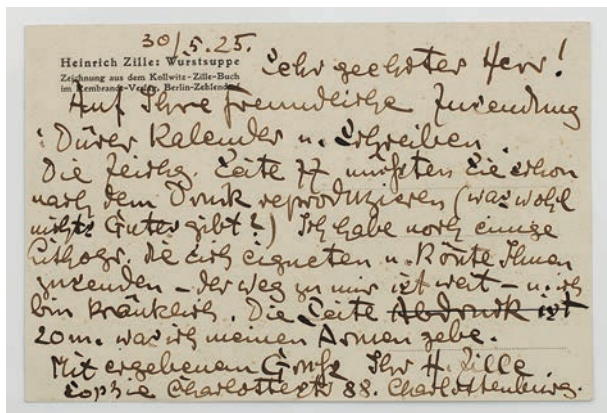 30/5.25.
Heinrich Zille: Wurstsuppe
Zeichnung aus dem Kollwitz-Zille-Buch
im Rembrandt-Verlag, Berlin-Zehlendorf
Sehr geehrter Herr!
Auf Ihre freundliche Zusendung
: Dürer Kalender u. Schreiben.
Die Zeichg. Seite 77 müßten Sie schon
nach dem Druck reproduzieren (was wohl
nichts Gutes gibt?) Ich habe noch einige
Lithogr. die sich eigneten u. könte Ihnen
zusenden – der Weg zu mir ist weit – u. ich
bin kränklich. Die Seite Abdruck ist
20 m. was ich meinen Armen gebe.
Mit ergebenem Gruß Ihr H. Zille.
Sophie Charlottestr 88. Charlottenburg.